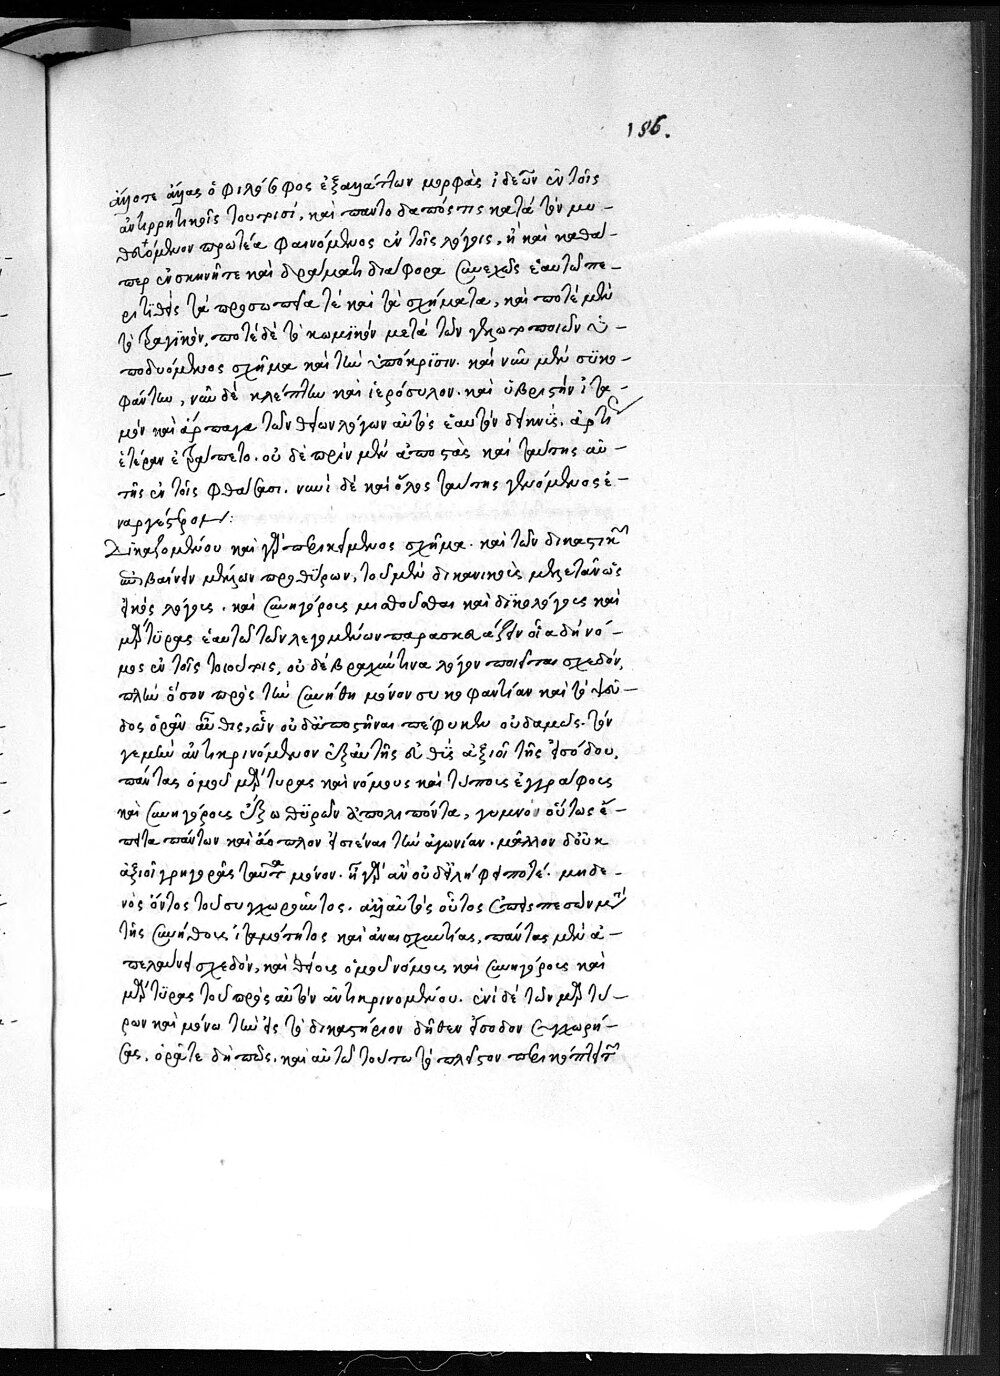 186.
ἄλλοτε ἄλλας ὁ φιλόσοφος ἐξαλλάττων μορφὰς ἰδεῶν ἐν τοῖς
ἀντιρρητικοῖς τουτοισί, καὶ παντοδαπός τις κατὰ τὸν μυ-
θευόμενον πρωτέα φαινόμενος ἐν τοῖς λόγοις, ἢ καὶ καθά-
περ ἐν σκηνῇ τε καὶ δράματι διάφορα συνεχῶς ἑαυτῷ πε-
ριτιθεὶς τὰ προσωπεῖα τὲ καὶ τὰ σχήματα, καὶ ποτὲ μὲν
τὸ τραγικὸν, ποτὲ δὲ τὸ κωμϊκὸν μετὰ τῶν γελωτοποιῶν ὑ-
ποδυόμενος σχῆμα καὶ τὴν ὑπόκρϊσιν. καὶ νῦν μὲν συκο-
φάντην, νῦν δὲ κλέπτην καὶ ἱερόσυλον. καὶ ὑβριστὴν ἰτα-
μὸν καὶ ἅρπαγα τῶν θείων λόγων αὐτὸς ἑαυτὸν δεικνὺς. ἄρτι
ἑτέραν ἐτράπετο. οὐ δὲ πρὶν μὲν ἀποστὰς καὶ ταύτης αὐ-
τῆς ἐν τοῖς φθάσασι. νυνὶ δὲ καὶ ὅλος ταύτης γενόμενος ἐ-
ναργέστερον:
Δικαζομένου καὶ γὰρ περικείμενος σχῆμα. καὶ τῶν δικαστικῶν
ἐπιβαίνειν μέλλων προθύρων, τοῦ μὲν δικανικοῖς μὲν ἐτανῶς
εἰκὸς λόγοις. καὶ συνηγόροις μισθοῦσθαι καὶ δικολόγοις καὶ
μάρτυρας ἑαυτῷ τῶν λεγομένων παρασκευάζειν οἷα δὴ νό-
μος ἐν τοῖς τοιούτοις, οὐ δὲ βραχύν τινα λόγον ποιεῖται σχεδόν,
πλὴν ὅσον πρὸς τὴν συνήθη μόνον συκοφαντίαν καὶ τὸ ψεῦ-
δος ὁρᾶν αὖθις, ὧν οὐδ' ἀποστῆναι πέφυκεν οὐδαμῶς. τὸν
γε μὴν ἀντικρινόμενον ἐξ αὐτῆς εὐθὺς ἀξιοῖ τῆς εἰσόδου,
πάντας ὁμοῦ μάρτυρας καὶ νόμους καὶ τύπους ἐγγράφους
καὶ συνηγόρους ἔξω θυρῶν ἀπολιπόντα, γυμνὸν οὕτως ἔ-
πειτα πάντων καὶ ἄοπλον εἰσιέναι τὴν ἀγωνίαν. μᾶλλον δ' οὐκ
ἀξιοῖ γρηγορᾶς ταῦτα μόνον. ἦ γὰρ ἂν οὐ δεινὴ φείποτε. μηδε-
νὸς ὄντος τοῦ συγχωροῦντος. ἀλλ' αὐτὸς οὗτος ἐπεισπεσὼν μετὰ
τῆς συνήθους ἰταμότητος καὶ ἀναισχυντίας, πάντας μὲν ἀ-
πελαύνει σχεδὸν, καὶ θείους ὁμοῦ νόμους καὶ συνηγόρους καὶ
μάρτυρας τοῦ πρὸς αὐτὸν ἀντικρινομένου. ἑνὶ δὲ τῶν μαρτύ-
ρων καὶ μόνῳ τὴν εἰς τὸ δικαστήριον δῆθεν εἴσοδον συγχωρή-
σας. ὁρᾶτε δὴ πῶς. καὶ αὐτῷ τούτῳ τὸ πλεῖστον περικόπτεται